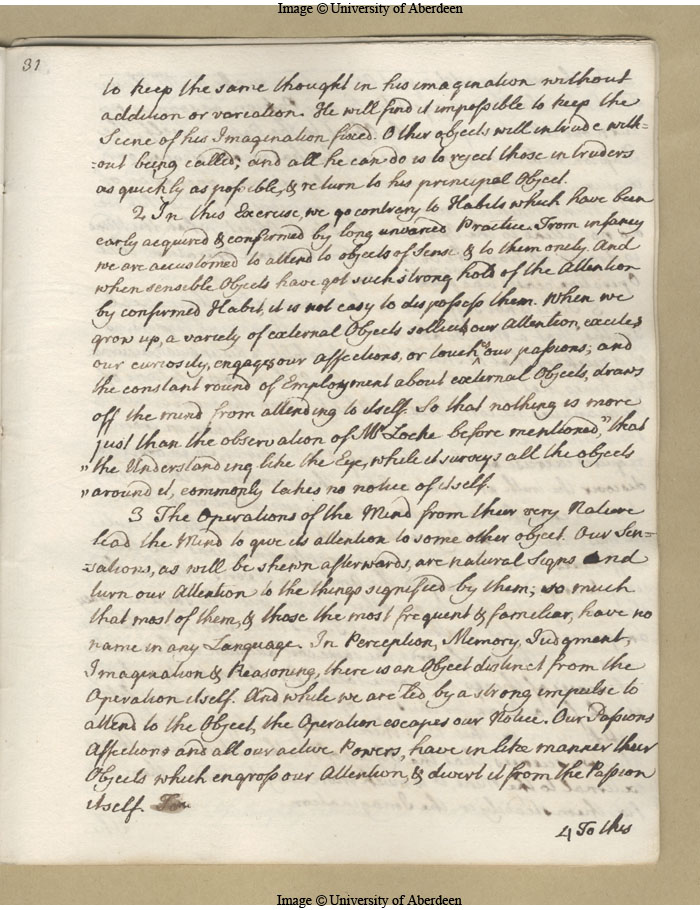 Image © University of Aberdeen
31
to keep the same thought in his imagination without
addition or variation. He will find it impossible to keep the
Scene of his Imagination fixed. Other objects will intrude with=
=out being called; and all he can do is to reject those intruders
as quickly as possible, & return to his principal Object.
2 In this Exercise, we go contrary to Habits which have been
early acquired & confirmed by long unvaried Practice. From infancy
we are accustomed to attend to objects of Sense & to them onely. And
when sensible Objects have got such strong hold of the Attention
by confirmed Habit, it is not easy to dispossess them. When we
grow up, a variety of external Objects sollicits our attention, excites
our curiosity, engages our affections, or touches our passions; and
the constant round of Employment about external Objects, draws
off the mind from attending to itself. So that nothing is more
just than the observation of Mr Locke before mentioned, "that
"the Understanding like the Eye, while it surveys all the objects
"around it, commonly takes no notice of itself.
3 The Operations of the Mind from their very Nature
lead the Mind to give its attention to some other object. Our Sen=
=sations, as will be shewn afterwards, are natural Signs and
turn our Attention to the things signified by them; so much
that most of them, & those the most frequent & familiar, have no
name in any Language. In Perception, Memory, Judgment,
Imagination & Reasoning, there is an Object distinct from the
Operation itself. And while we are led by a strong impulse to
attend to the Object, the Operation escapes our Notice. Our Passions
Affections and all our active Powers, have in like manner their
Objects which engross our Attention, & divert it from the Passion
itself.
4 To this
Image © University of Aberdeen